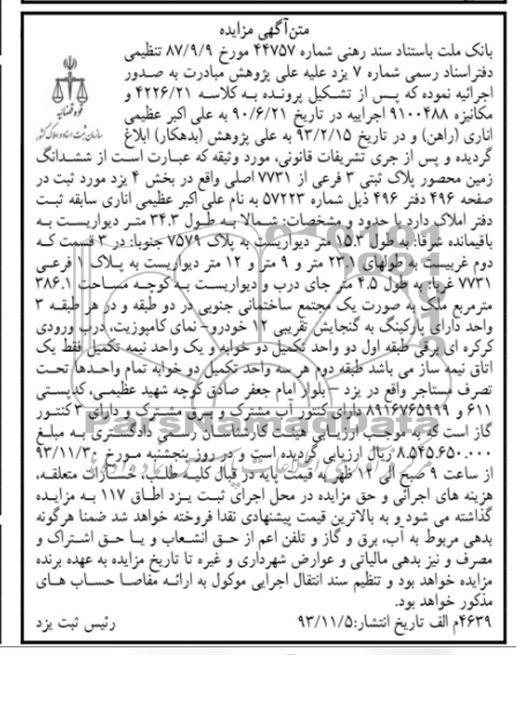 متن آگهی مزایده
بانک ملت باستناد سند رهنی شماره ۴۴۷۵۷ مورخ ۸۷/۹/۹ تنظیمی
دفتر اسناد رسمی شماره ۷ یزد علیه علی پژوهش مبادرت به صدور
اجرائیه نموده که پس از تشکیل پرونده به کلاسه ۴۲۲۶/۲۱ و
مکانیزه ۹۱۰۰۴۸۸ اجراییه در تاریخ ۹۰/۶/۲۱ به علی اکبر عظیمی
اناری (راهن) و در تاریخ ۹۳/۲/۱۵ به علی پژوهش (بدهکار) ابلاغ
گردیده و پس از جری تشریفات قانونی، مورد وثیقه که عبارت است از ششدانگ
زمین محصور پلاک ثبتی ۳ فرعی از ۷۷۳۱ اصلی واقع در بخش ۴ یزد مورد ثبت در
صفحه ۴۹۶ دفتر ۴۹۶ ذیل شماره ۵۷۲۲۳ به نام علی اکبر عظیمی اناری سابقه ثبت
دفتر املاک دارد با حدود و مشخصات: شمالا به طول ۳۴.۳ متر دیواریست به
باقیمانده شرقا: به طول ۱۵.۳ متر دیواریست به پلاک ۷۵۷۹ جنوبا: در ۳ قسمت که
دوم غربیست به طولهای ۲۳.۱ متر و ۹ متر و ۱۲ متر دیواریست به پلاک ۱ فرعی
۷۷۳۱ غربا: به طول ۴.۵ متر جای درب و دیواریست به کوچه مساحت ۳۸۶.۱
مترمربع ملک به صورت یک مجتمع ساختمانی جنوبی در دو طبقه و در هر طبقه ۳
واحد دارای پارکینگ به گنجایش تقریبی ۱۲ خودرو- نمای کامپوزیت، درب ورودی
کرکره ای برقی طبقه اول دو واحد تکمیل دو خوابه و یک واحد نیمه تکمیل فقط یک
اتاق نیمه ساز می باشد طبقه دوم هر سه واحد تکمیل دو خوابه تمام واحدها تحت
تصرف مستاجر واقع در یزد – بلوار امام جعفر صادق کوچه شهید عظیمی، کدپستی
۶۱۱ و ۸۹۱۶۷۶۵۹۹۹ دارای کنتور آب مشترک و برق مشترک و دارای ۳ کنتور
گاز است که به موجب ارزیابی هیئت کارشناسان رسمی دادگستری به مبلغ
۸.۵۴۵.۶۵۰.۰۰۰ ریال ارزیابی گردیده است و در روز پنجشنبه مورخ ۹۳/۱۱/۳۰
از ساعت ۹ صبح الی ۱۲ ظهر به قیمت پایه در قبال کلیه طلب، خسارات متعلقه،
هزینه های اجرائی و حق مزایده در محل اجرای ثبت یزد اطاق ۱۱۷ به مزایده
گذاشته می شود و به بالاترین قیمت پیشنهادی نقدا فروخته خواهد شد ضمنا هرگونه
بدهی مربوط به آب، برق و گاز و تلفن اعم از حق انشعاب و یا حق اشتراک و
مصرف و نیز بدهی مالیاتی و عوارض شهرداری و غیره تا تاریخ مزایده به عهده برنده
مزایده خواهد بود و تنظیم سند انتقال اجرایی موکول به ارائه مفاصا حساب های
مذکور خواهد بود.
۴۶۳۹م الف تاریخ انتشار:۹۳/۱۱/۵ رئیس ثبت یزد
قوه قضائیه
سازمان ثبت اسناد و املاک کشور
ParsNamadData